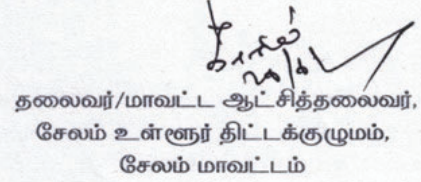 தலைவர்/மாவட்ட ஆட்சித்தலைவர்,
சேலம் உள்ளூர் திட்டக்குழுமம்,
சேலம் மாவட்டம்